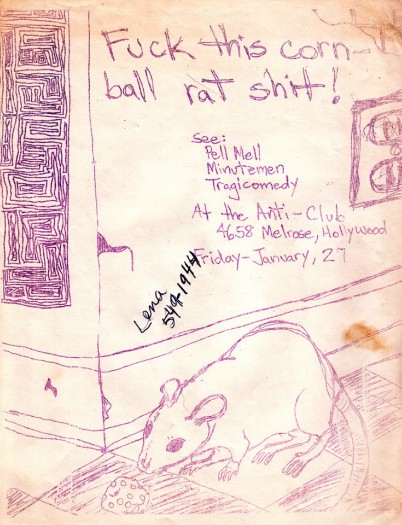 Fuck this corn-
ball rat shit!
see:
Pell Mell
Minutemen
Tragicomedy
At the Anti-Club
4658 Melrose, Hollywood
Friday-January, 27
Lena
549-1944